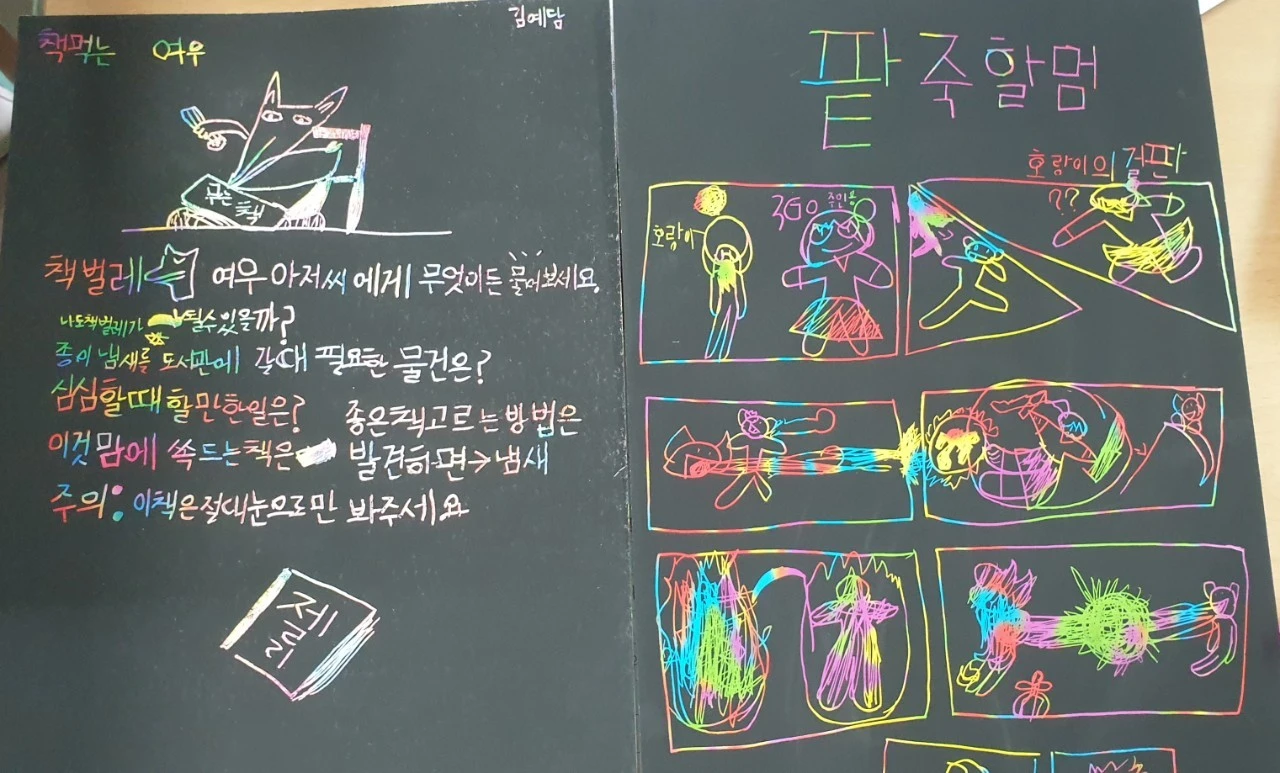 김예담
책먹는 여우
책벌레 여우아저씨에게 무엇이든 물어보세요.
나도책벌레가 될수있을까?
종이 냄새를 도서관에 갈때 필요한 물건은?
심심할때할만한일은? 좋은책고르는방법은
이것 맘에 쏙드는책은 발견하면→냄새
주의: 이책은절대눈으로만 봐주세요
제목
팥죽할멈
호랑이의 걸판
??
호랑이
360